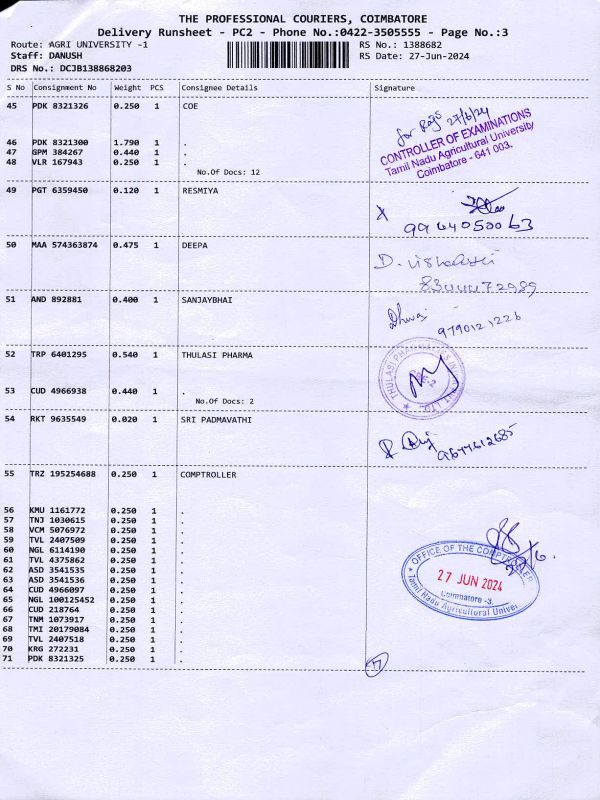 THE PROFESSIONAL COURIERS, COIMBATORE
Delivery Runsheet - PC2 - Phone No.:0422-3505555 - Page No.:3
Route: AGRI UNIVERSITY -1 RS No.: 1388682
Staff: DANUSH RS Date: 27-Jun-2024
DRS No.: DCJB138868203
S No Consignment No Weight PCS Consignee Details Signature
45 PDK 8321326 0.250 1 COE
for 27/6/24
CONTROLLER OF EXAMINATIONS
Tamil Nadu Agricultural University
Coimbatore - 641 003.
46 PDK 8321300 1.790 1 .
47 GPM 384267 0.440 1 .
48 VLR 167943 0.250 1 .
No.Of Docs: 12
49 PGT 6359450 0.120 1 RESMIYA
X
9964050063
50 MAA 574363874 0.475 1 DEEPA
51 AND 892881 0.400 1 SANJAYBHAI
9790121226
52 TRP 6401295 0.540 1 THULASI PHARMA
53 CUD 4966938 0.440 1 .
No.Of Docs: 2
54 RKT 9635549 0.020 1 SRI PADMAVATHI
9677612685
55 TRZ 195254688 0.250 1 COMPTROLLER
56 KMU 1161772 0.250 1 .
57 TNJ 1030615 0.250 1 .
58 VCM 5076972 0.250 1 .
59 TVL 2407509 0.250 1 .
60 NGL 6114190 0.250 1 .
61 TVL 4375862 0.250 1 .
62 ASD 3541535 0.250 1 .
63 ASD 3541536 0.250 1 .
64 CUD 4966097 0.250 1 .
65 NGL 100125452 0.250 1 .
66 CUD 218764 0.250 1 .
67 TNM 1073917 0.250 1 .
68 TMI 20179084 0.250 1 .
69 TVL 2407518 0.250 1 .
70 KRG 272231 0.250 1 .
71 PDK 8321325 0.250 1 .
OFFICE OF THE COMPTROLLER
27 JUN 2024
Coimbatore -3.
Tamil Nadu Agricultural University
17